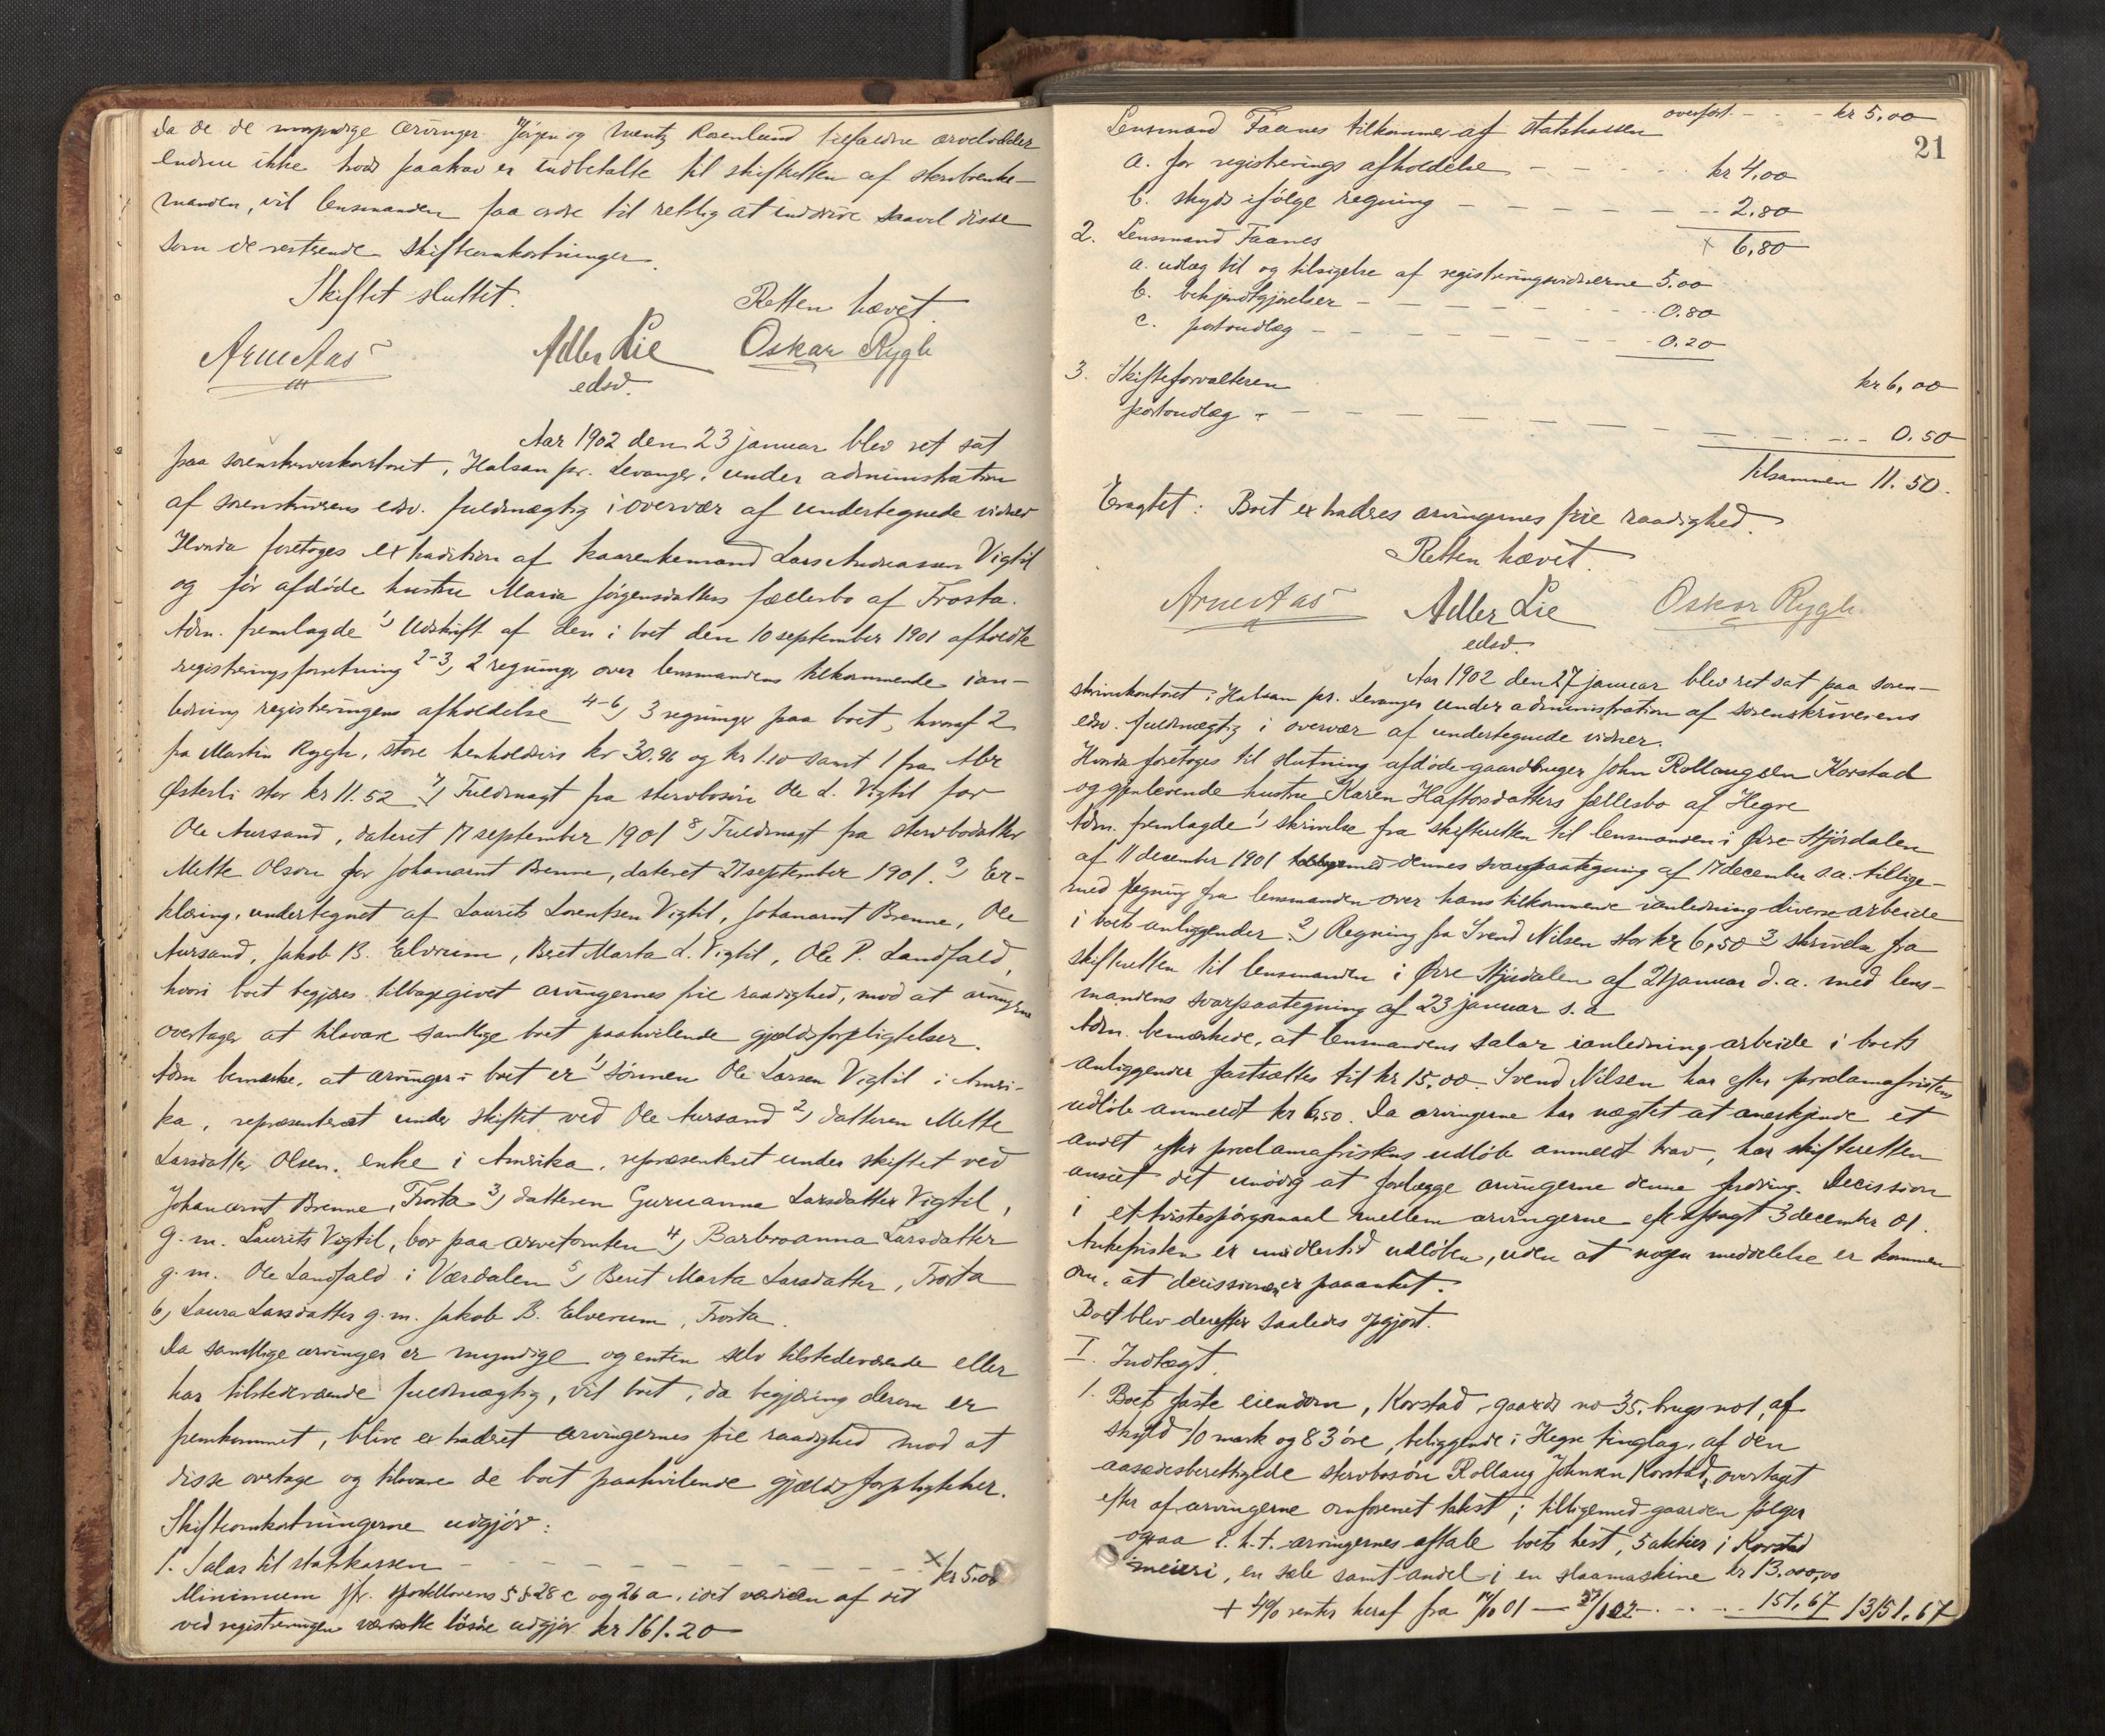 da de de umyndige arvinger Jørgen og Mentz Rosenlund tilfaldne arvelodder
endnu ikke trods paakrav er indbetalte til skifteretten af stervboenke-
manden, vil lensmanden faa ordre til retslig at inddrive saavel disse
som de resterende skifteomkostninger.
Skiftet sluttet. Retten hævet.
Arne Aas Adler Lie Oskar Rygh
edsv.
Aar 1902 den 23 januar blev ret sat
paa sorenskriverkontoret, Halsan pr. Levanger, under administration
af sorenskriverens edsv. fuldmægtig i overvær af undertegnede vidner
Hvorda foretoges extradition af kaarenkemand Lars Andreassen Vigtil
og før afdøde hustru Maria Jørgensdatters fællesbo af Frosta.
Adm. fremlagde 1) Udskrift af den i boet den 10 september 1901 afholdte
registreringsforretning 2-3) 2 regninger over lensmandens tilkommende i an-
ledning registreringens afholdelse 4-6) 3 regninger paa boet, hvoraf 2
fra Martin Rygh, store henholdsvis kr 30.96 og kr 1.10 samt 1 fra Abr
Østerli stor kr 11.52 7) Fuldmagt fra stervbosøn Ole L. Vigtil for
Ole Aursand, dateret 17 september 1901 8) Fuldmagt fra stervbodatter
Mette Olson for Johanarnt Brenne, dateret 27 september 1901. 9) Er-
klæring, undertegnet af Laurits Lorentsen Vigtil, Johanarnt Brenne, Ole
Aursand, Jakob B. Elvrum, Beret Marta L. Vigtil, Ole P. Landfald,
hvori boet begjæres tilbagegivet arvingernes frie raadighed, mod at arvingerne
overtager at tilsvare samtlige boet paahvilende gjældsforpligtelser.
Adm bemærke, at arvinger i boet er 1) sønnen Ole Larsen Vigtil i Ameri-
ka, repræsenteret under skiftet ved Ole Aursand 2) datteren Mette
Larsdatter Olsen, enke i Amerika, repræsenteret under skiftet ved
Johanarnt Brenne, Frosta 3) datteren Guruanna Larsdatter Vigtil,
g.m. Laurits Vigtil, bor paa arvetomten 4) Barbroanna Larsdatter
g.m. Ole Landfald i Værdalen 5) Berit Marta Larsdatter, Frosta
6) Laura Larsdatter g.m. Jakob B. Elverum, Frosta.
Da samtlige arvinger er myndige og enten selv tilstedeværende eller
har tilstedeværende fuldmægtig, vil boet, da begjæring derom er
fremkommet, blive extraderet arvingernes frie raadighed mod at
disse overtage og tilsvare de boet paahvilende gjældsforpligtelser.
Skifteomkostningerne udgjør:
1. Salar til statskassen - - - - - - × kr 5.00
Minimum jfr. sportellovens §§ 28 c og 26 a, idet værdien af det
ved registreringen værdsatte løsøre udgjør kr 161.20
21
overført - - - kr 5,00
Lensmand Faanes tilkommer af statskassen
a. for registrerings afholdelse - - - kr 4,00
b. skyds ifølge regning - - - - - 2,80
× 6,80
2. Lensmand Faanes
a. udlæg til og tilsigelse af registreringsvidnerne 5.00
b. bekjendtgjørelser - - - - - 0.80
c. portoudlæg - - - - - 0.20
3. Skifteforvalteren kr 6,00
portoudlæg - - - - - - 0.50
tilsammen 11.50.
Eragtet: Boet extraderes arvingernes frie raadighed.
Retten hævet.
Arne Aas Adler Lie Oskar Rygh.
edsv.
Aar 1902 den 27 januar blev ret sat paa soren-
skriverkontoret i Halsan pr. Levanger under administration af sorenskriverens
edsv. fuldmægtig i overvær af undertegnede vidner.
Hvorda foretoges til slutning afdøde gaardbruger John Rollaugsen Korstad
og gjenlevende hustru Karen Haftorsdatters fællesbo af Hegre
Adm. fremlagde 1) skrivelse fra skifteretten til lensmanden i Øvre Stjørdalen
af 11 december 1901 med dennes svarspaategning af 17 december s.a. tillige-
med regning fra lensmanden over hans tilkommende i anledning diverse arbeide
i boets anliggender 2) Regning fra Svend Nilsen stor kr 6,50 3) skrivelse fra
skifteretten til lensmanden i Øvre Stjørdalen af 21 januar d.a. med lens-
mandens svarspaategning af 23 januar s. a
Adm. bemærkede, at lensmandens salar i anledning arbeide i boets
anliggender fastsættes til kr 15.00. Svend Nilsen har efter proclamafristens
udløb anmeldt kr 6,50. Da arvingerne har nægtet at anerkjende et
andet efter proclamafristens udløb anmeldt krav, har skifteretten
anseet det unødig at forelægge arvingerne denne fordring. Decission
i et tvistespørgsmaal mellem arvingerne er afsagt 3 december 01.
Ankefristen er imidlertid udløben, uden at nogen meddelelse er kommen
om, at decissionen er paaanket.
Boet blev derefter saaledes opgjort.
I. Indtægt.
1. Boets faste eiendom, Korstad, gaards no 35, brugs no 1, af
skyld 10 mark og 83 øre, beliggende i Hegre tinglag, af den
aasædesberettigede stervbosøn Rollaug Johnsen Korstad, overtaget
efter af arvingerne omforenet takst; tilligemed gaarden følger
ogsaa i. h. t. arvingernes aftale boets hest, 5 aktier i Korstad
meieri, en sæle samt andel i en slaamaskine kr 13.000,00
+ 4% renter heraf fra 14/10 01 — 27/1 02 - - - 151,67 13151,67